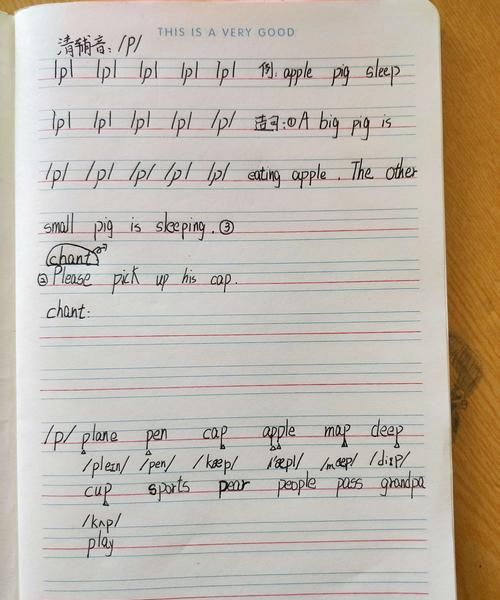 THIS IS A VERY GOOD
清辅音: /p/
/p/ /p/ /p/ /p/ /p/ 例: apple pig sleep
/p/ /p/ /p/ /p/ /p/ 造句: ① A big pig is
/p/ /p/ /p/ /p/ /p/ eating apple. The other
small pig is sleeping. ③
chant
② Please pick up his cap.
chant:
/p/ plane pen cap apple map deep
/pleɪn/ /pen/ /kæp/ /ˈæpl/ /mæp/ /diːp/
cup sports pear people pass grandpa
/kʌp/
play